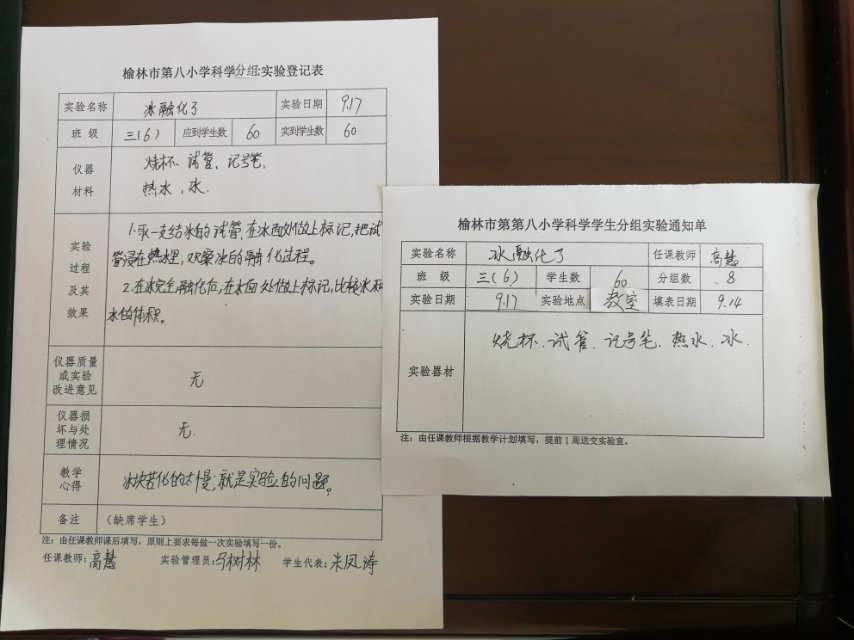 榆林市第八小学科学分组实验登记表
实验名称 冰融化了 实验日期 9.17
班 级 三(6) 应到学生数 60 实到学生数 60
仪器
材料
烧杯、试管、记号笔、
热水、冰.
实验
过程
及其
效果
1.取一支结冰的试管,在冰面处做上标记,把试
管浸在热水里,观察冰的融化过程。
2.在冰完全融化后,在水面处做上标记,比较冰和
水的体积。
仪器质量
或实验
改进意见
无
仪器损
坏与处
理情况
无.
教学
心得
冰块若化的太慢,就是实验的问题。
备注 (缺席学生)
注:由任课教师课后填写,原则上要求每做一次实验填写一份。
任课教师:高慧 实验管理员:马树林 学生代表:朱凤涛
榆林市第第八小学科学学生分组实验通知单
实验名称 冰融化了 任课教师 高慧
班 级 三(6) 学生数 60 分组数 8
实验日期 9.17 实验地点 教室 填表日期 9.14
实验器材
烧杯、试管、记号笔、热水、冰.
注:由任课教师根据教学计划填写,提前1周送交实验室。